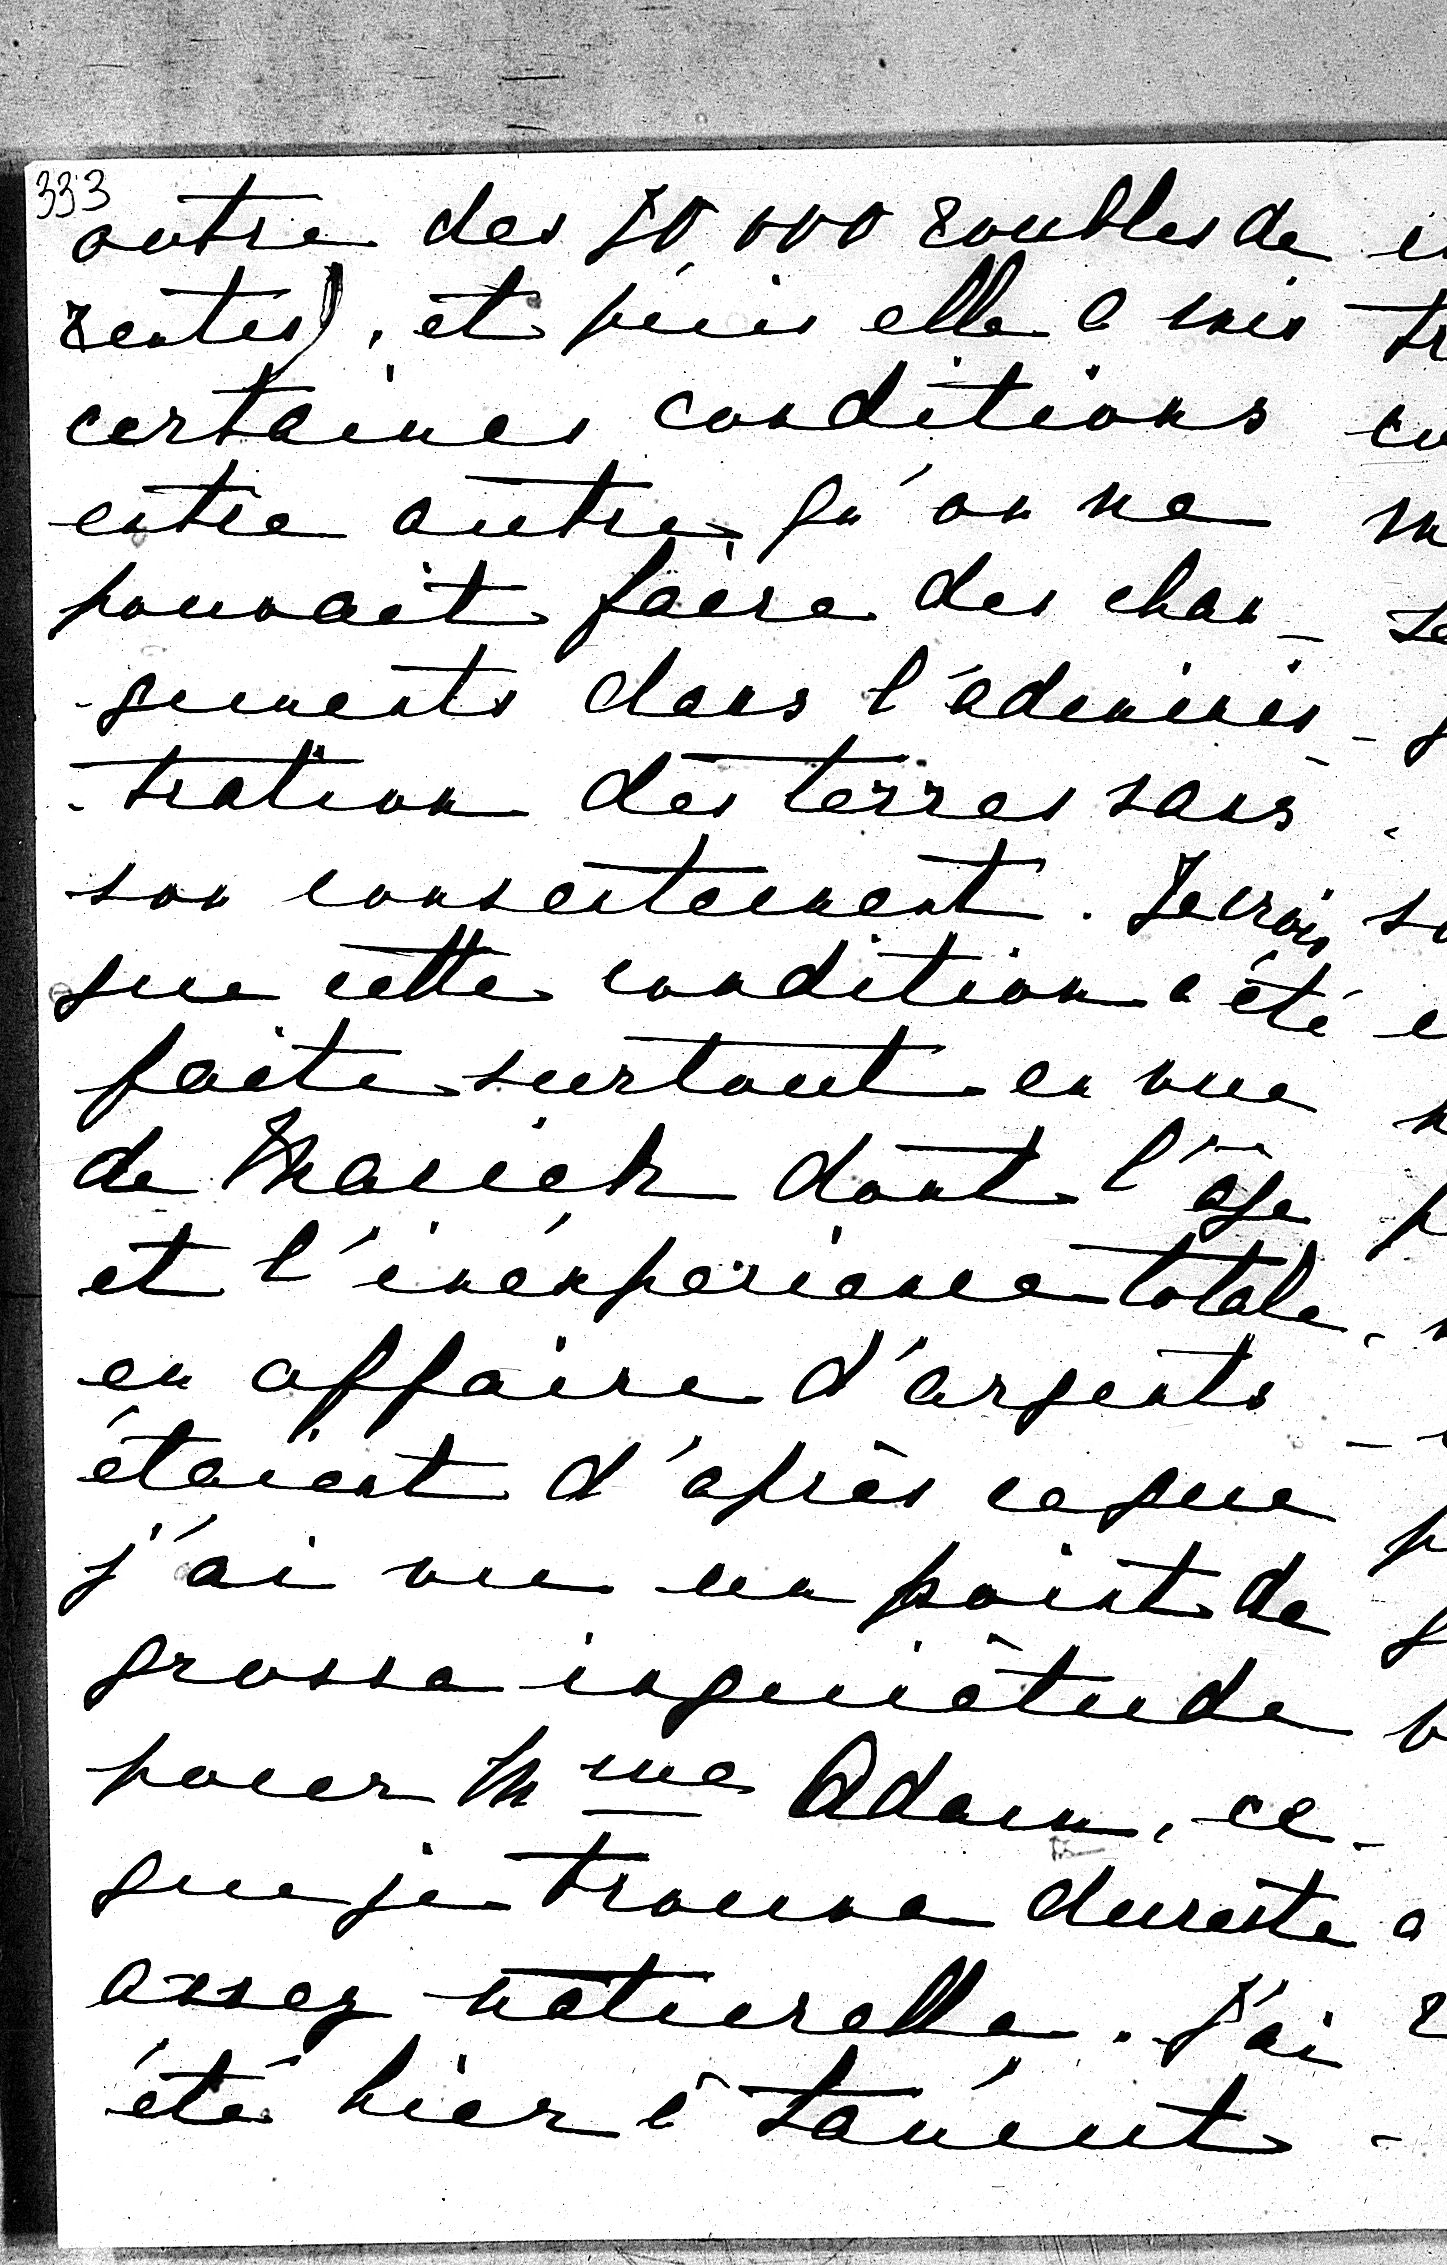 333
outre des 50,000 roubles de
rentes), et puis elle a mis
certaines conditions
entre autre, qu'on ne
pouvait faire des chan-
-gements dans l'adminis-
-tration des terres sans
son consentement. Je crois
que cette condition a été
faite surtout en vue
de Maciek dont l'âge
et l'inéxperience totale
en affaire d'argents
étaient d'après ce que
j'ai vu un point de
grosse inquiètude
pour Mme Adam, ce
que je trouve dureste
assez naturelle. J'ai
été hier à